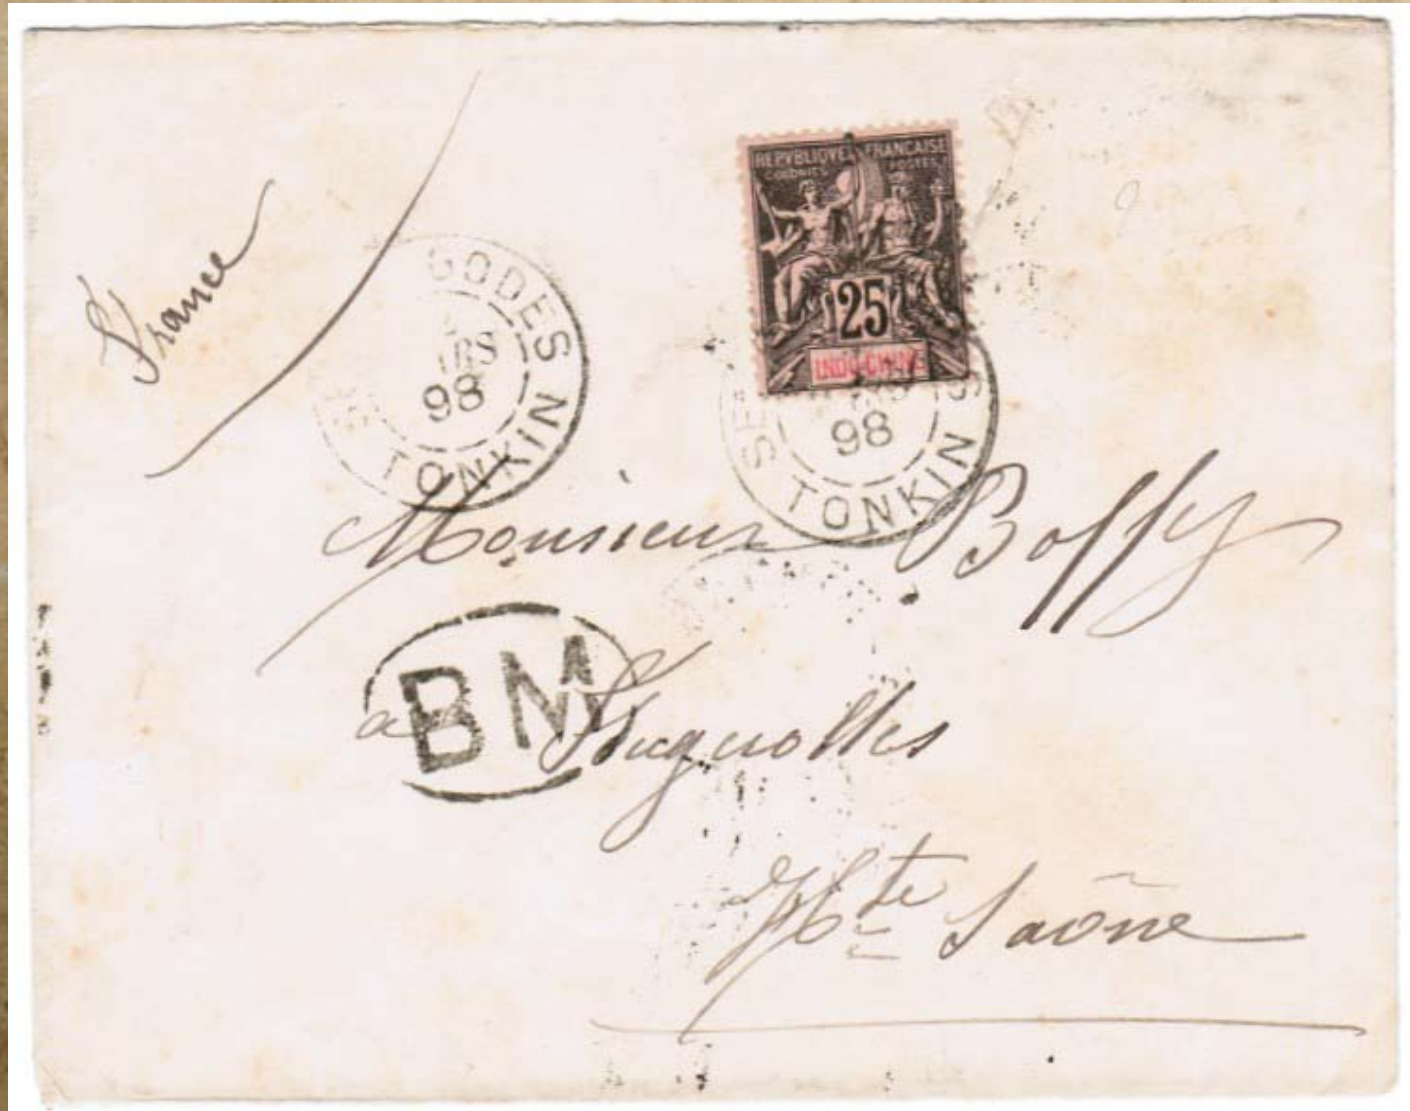 France
GODES
RS
98
TONKIN
REPVBLIQVE FRANCAISE
COLONIES POSTES
25
INDO-CHINE
SE
98
TONKIN
Monsieur Boffy
BM
à Fuguolles
Hte Saône